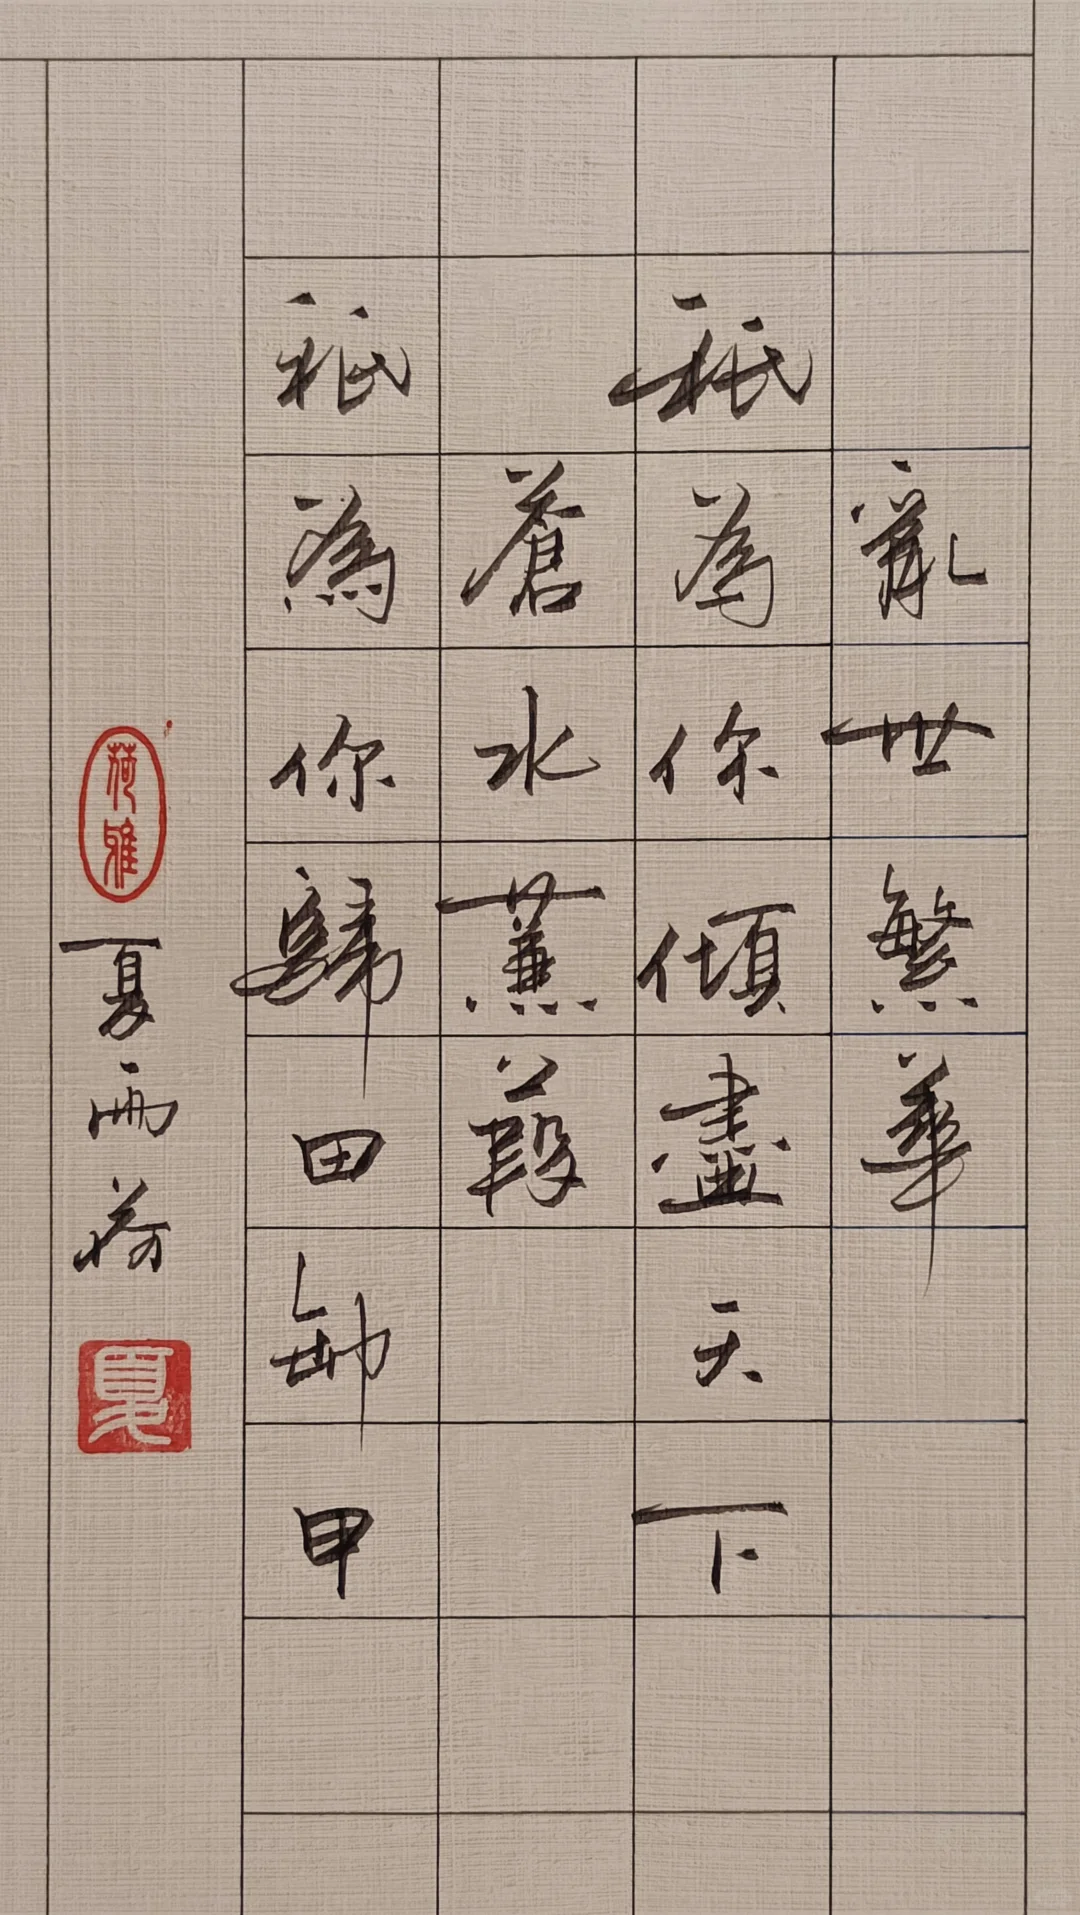 亂世繁華
祇為你傾盡天下
蒼水蒹葭
祇為你歸田卸甲
荷雅
夏雨荷
夏